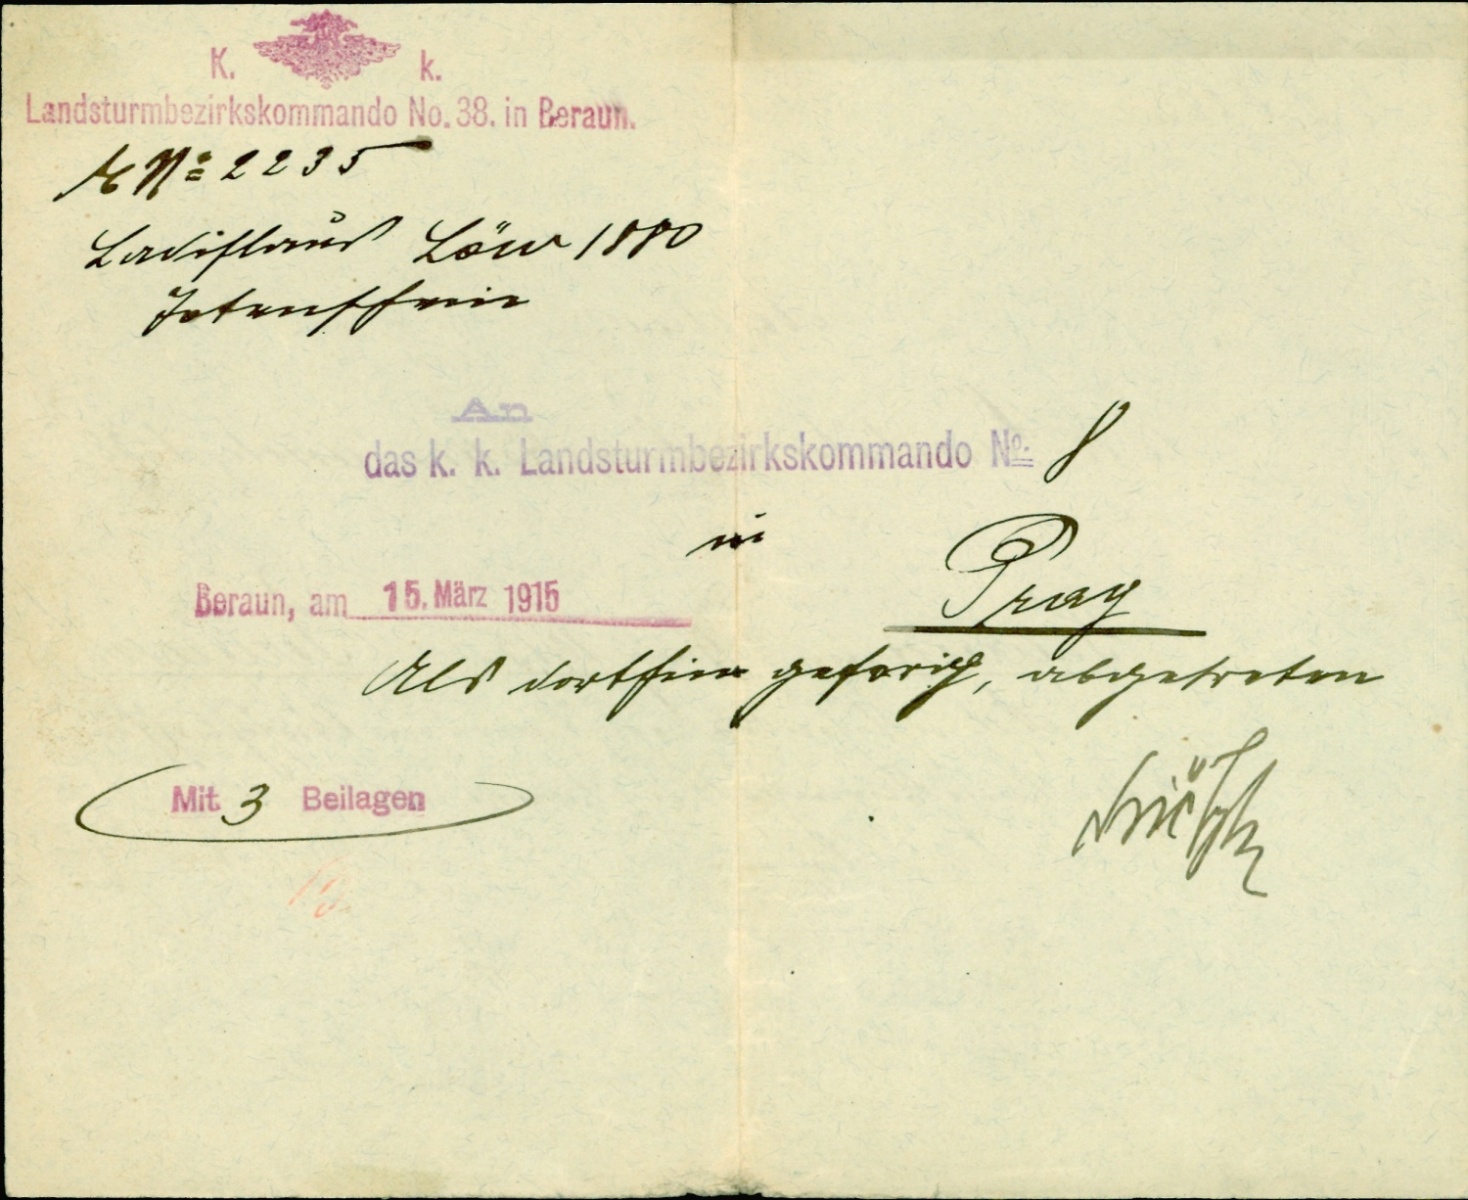 K. k.
Landsturmbezirkskommando No. 38. in Beraun.
No 2235
Ladislaus Löw 1880
An
das k. k. Landsturmbezirkskommando No. 8
in Prag
Beraun, am 15. März 1915
Als dorthin gehörig, abgetreten
Mit 3 Beilagen